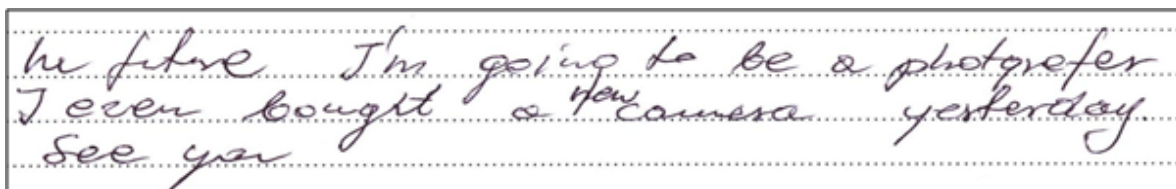 In future I'm going to be a photgrefer
I even bought a new camera yesterday.
See you